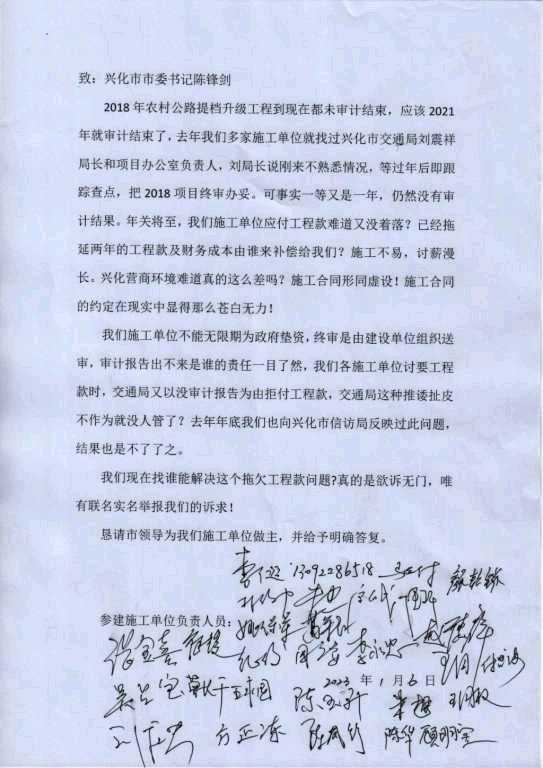 致：兴化市市委书记陈锋剑
2018年农村公路提档升级工程到现在都未审计结束，应该2021
年就审计结束了，去年我们多家施工单位就找过兴化市交通局刘震祥
局长和项目办公室负责人，刘局长说刚来不熟悉情况，等过年后即跟
踪查点，把2018项目终审办妥。可事实一等又是一年，仍然没有审
计结果。年关将至，我们施工单位应付工程款难道又没着落？已经拖
延两年的工程款及财务成本由谁来补偿给我们？施工不易，讨薪漫
长。兴化营商环境难道真的这么差吗？施工合同形同虚设！施工合同
的约定在现实中显得那么苍白无力！
我们施工单位不能无限期为政府垫资，终审是由建设单位组织送
审，审计报告出不来是谁的责任一目了然，我们各施工单位讨要工程
款时，交通局又以没审计报告为由拒付工程款，交通局这种推诿扯皮
不作为就没人管了？去年年底我们也向兴化市信访局反映过此问题，
结果也是不了了之。
我们现在找谁能解决这个拖欠工程款问题?真的是欲诉无门，唯
有联名实名举报我们的诉求！
恳请市领导为我们施工单位做主，并给予明确答复。
13092286518
参建施工单位负责人员：
2023年1月6日
方正冻
陈华